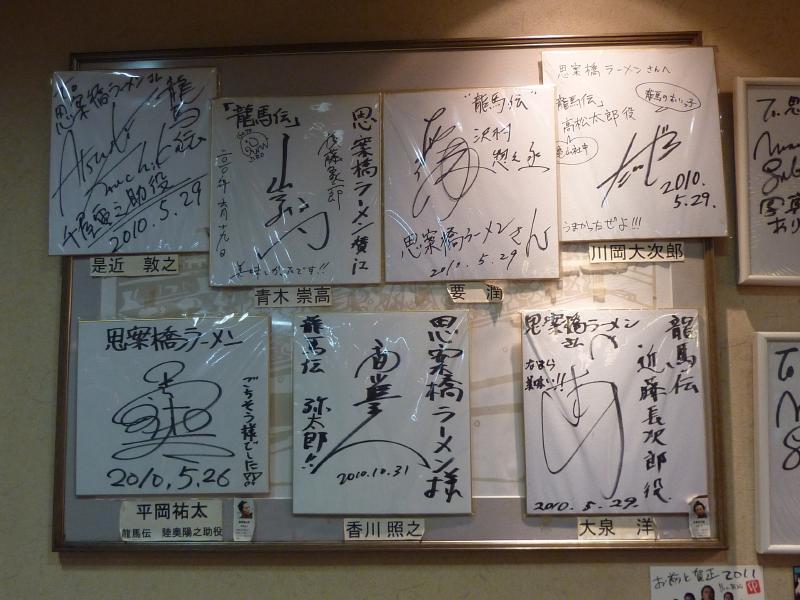 思案橋ラーメンさん
龍馬伝
千屋寅之助役
2010.5.29
是近 敦之
「龍馬伝」
思案橋ラーメン
後藤象二郎
美味しかったです!!
青木 崇高
"龍馬伝"
沢村
惣之丞
思案橋ラーメンさん
2010.5.29
要 潤
思案橋ラーメンさんへ
「龍馬伝」
高松太郎役
2010.
5.29.
うまかったぜよ!!!
川岡大次郎
思案橋ラーメン
ごちそう様でした!!
2010.5.26
平岡祐太
龍馬伝 陸奥陽之助役
思案橋ラーメン様
龍馬伝
弥太郎
2010.10.31
香川 照之
思案橋ラーメン
さん
龍馬伝
近藤長次郎役
美味い!!
2010.5.29.
大泉 洋
To.思
写真
あり
To
2011